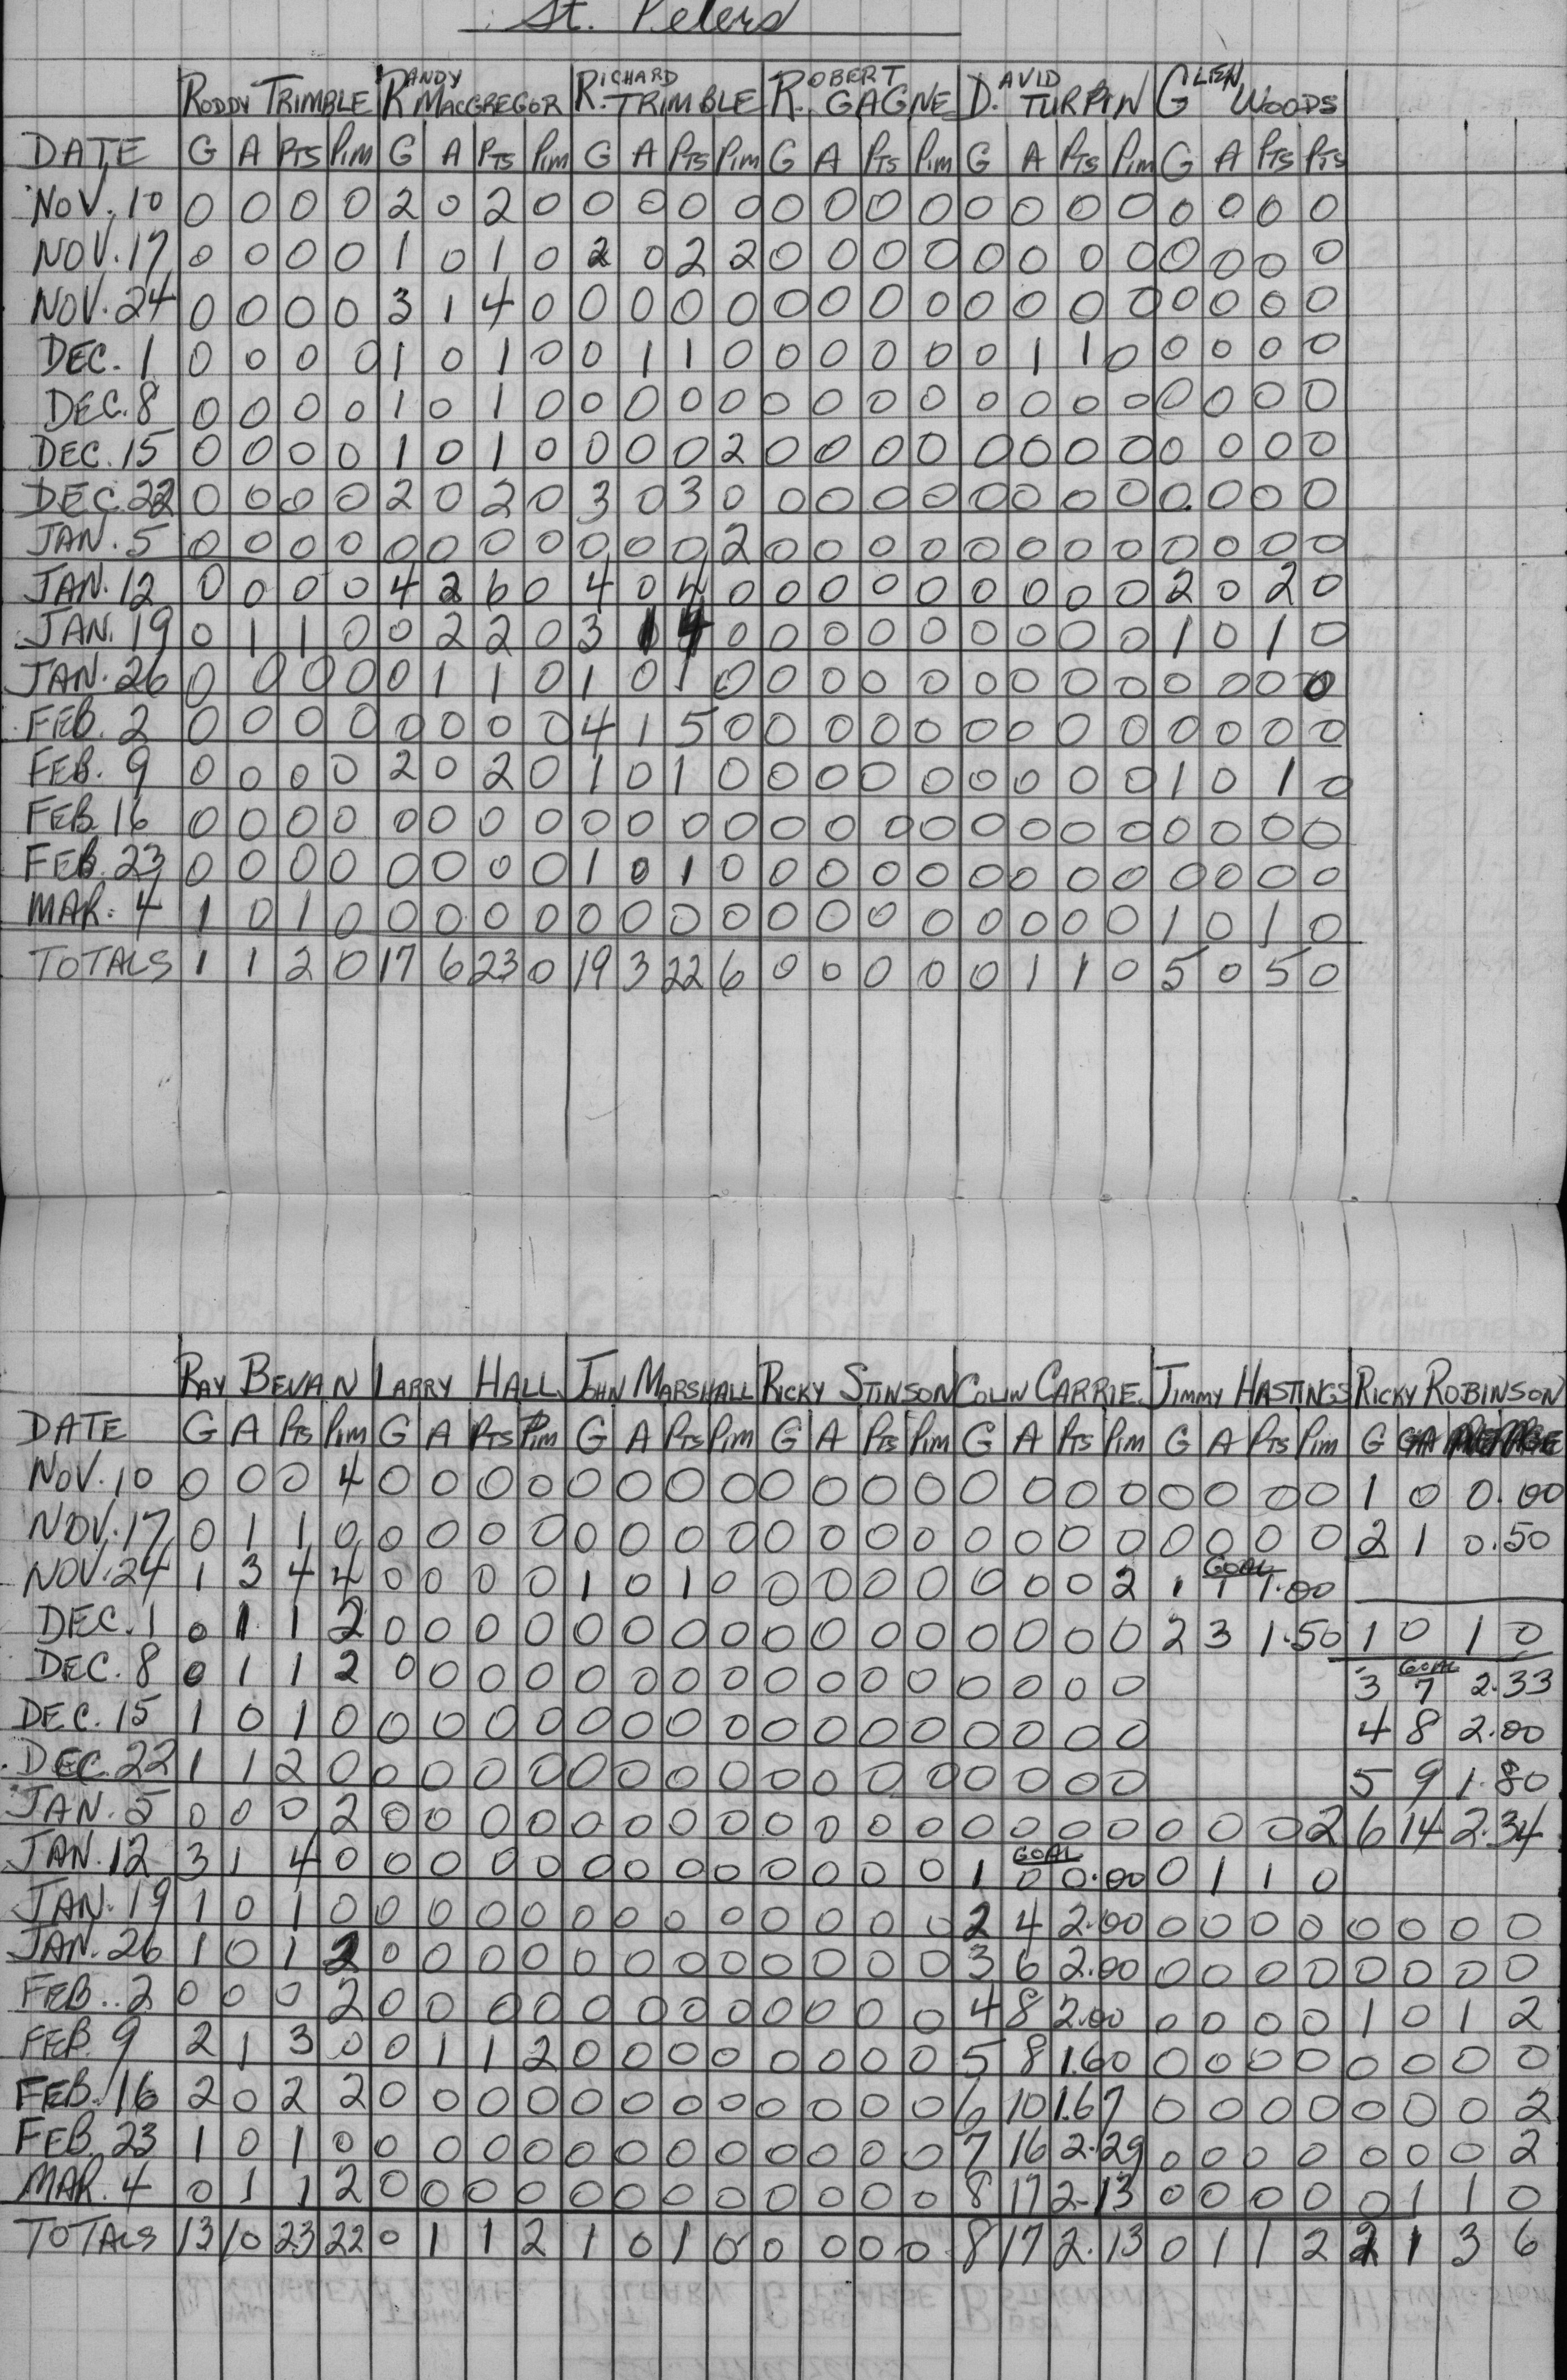 St. Peters
RODDY TRIMBLE RANDY MACGREGOR RICHARD TRIMBLE ROBERT GAGNE DAVID TURPIN GLEN WOODS
DATE G A PTS PIM G A PTS PIM G A PTS PIM G A PTS PIM G A PTS PIM G A PTS PTS
NOV. 10 0 0 0 0 2 0 2 0 0 0 0 0 0 0 0 0 0 0 0 0 0 0 0 0
NOV. 17 0 0 0 0 1 0 1 0 2 0 2 2 0 0 0 0 0 0 0 0 0 0 0 0
NOV. 24 0 0 0 0 3 1 4 0 0 0 0 0 0 0 0 0 0 0 0 0 0 0 0 0
DEC. 1 0 0 0 0 1 0 1 0 0 1 1 0 0 0 0 0 0 1 1 0 0 0 0 0
DEC. 8 0 0 0 0 1 0 1 0 0 0 0 0 0 0 0 0 0 0 0 0 0 0 0 0
DEC. 15 0 0 0 0 1 0 1 0 0 0 0 2 0 0 0 0 0 0 0 0 0 0 0 0
DEC. 22 0 0 0 0 2 0 2 0 3 0 3 0 0 0 0 0 0 0 0 0 0 0 0 0
JAN. 5 0 0 0 0 0 0 0 0 0 0 0 2 0 0 0 0 0 0 0 0 0 0 0 0
JAN. 12 0 0 0 0 4 2 6 0 4 0 4 0 0 0 0 0 0 0 0 0 2 0 2 0
JAN. 19 0 1 1 0 0 2 2 0 3 1 4 0 0 0 0 0 0 0 0 0 1 0 1 0
JAN. 26 0 0 0 0 0 1 1 0 1 0 1 0 0 0 0 0 0 0 0 0 0 0 0 0
FEB. 2 0 0 0 0 0 0 0 0 4 1 5 0 0 0 0 0 0 0 0 0 0 0 0 0
FEB. 9 0 0 0 0 2 0 2 0 1 0 1 0 0 0 0 0 0 0 0 0 1 0 1 0
FEB. 16 0 0 0 0 0 0 0 0 0 0 0 0 0 0 0 0 0 0 0 0 0 0 0 0
FEB. 23 0 0 0 0 0 0 0 0 1 0 1 0 0 0 0 0 0 0 0 0 0 0 0 0
MAR. 4 1 0 1 0 0 0 0 0 0 0 0 0 0 0 0 0 0 0 0 0 1 0 1 0
TOTALS 1 1 2 0 17 6 23 0 19 3 22 6 0 0 0 0 0 1 1 0 5 0 5 0
RAY BEVAN LARRY HALL JOHN MARSHALL RICKY STINSON COLIN CARRIE JIMMY HASTINGS RICKY ROBINSON
DATE G A PTS PIM G A PTS PIM G A PTS PIM G A PTS PIM G A PTS PIM G A PTS PIM G GA
NOV. 10 0 0 0 4 0 0 0 0 0 0 0 0 0 0 0 0 0 0 0 0 0 0 0 0 1 0 0.00
NOV. 17 0 1 1 0 0 0 0 0 0 0 0 0 0 0 0 0 0 0 0 0 0 0 0 0 2 1 0.50
NOV. 24 1 3 4 4 0 0 0 0 1 0 1 0 0 0 0 0 0 0 0 2 1 GOAL 1 1.00
DEC. 1 0 1 1 2 0 0 0 0 0 0 0 0 0 0 0 0 0 0 0 0 2 3 1.50 1 0 1 0
DEC. 8 0 1 1 2 0 0 0 0 0 0 0 0 0 0 0 0 0 0 0 0 3 GOAL 7 2.33
DEC. 15 1 0 1 0 0 0 0 0 0 0 0 0 0 0 0 0 0 0 0 0 4 8 2.00
DEC. 22 1 1 2 0 0 0 0 0 0 0 0 0 0 0 0 0 0 0 0 0 5 9 1.80
JAN. 5 0 0 0 2 0 0 0 0 0 0 0 0 0 0 0 0 0 0 0 0 0 0 0 2 6 14 2.34
JAN. 12 3 1 4 0 0 0 0 0 0 0 0 0 0 0 0 0 1 GOAL 0 0.00 0 1 1 0
JAN. 19 1 0 1 0 0 0 0 0 0 0 0 0 0 0 0 0 2 4 2.00 0 0 0 0 0 0 0 0
JAN. 26 1 0 1 2 0 0 0 0 0 0 0 0 0 0 0 0 3 6 2.00 0 0 0 0 0 0 0 0
FEB. 2 0 0 0 2 0 0 0 0 0 0 0 0 0 0 0 0 4 8 2.00 0 0 0 0 1 0 1 2
FEB. 9 2 1 3 0 0 1 1 2 0 0 0 0 0 0 0 0 5 8 1.60 0 0 0 0 0 0 0 0
FEB. 16 2 0 2 2 0 0 0 0 0 0 0 0 0 0 0 0 6 10 1.67 0 0 0 0 0 0 0 2
FEB. 23 1 0 1 0 0 0 0 0 0 0 0 0 0 0 0 0 7 16 2.29 0 0 0 0 0 0 0 2
MAR. 4 0 1 1 2 0 0 0 0 0 0 0 0 0 0 0 0 8 17 2.13 0 0 0 0 0 1 1 0
TOTALS 13 10 23 22 0 1 1 2 1 0 1 0 0 0 0 0 8 17 2.13 0 1 1 2 2 1 3 6